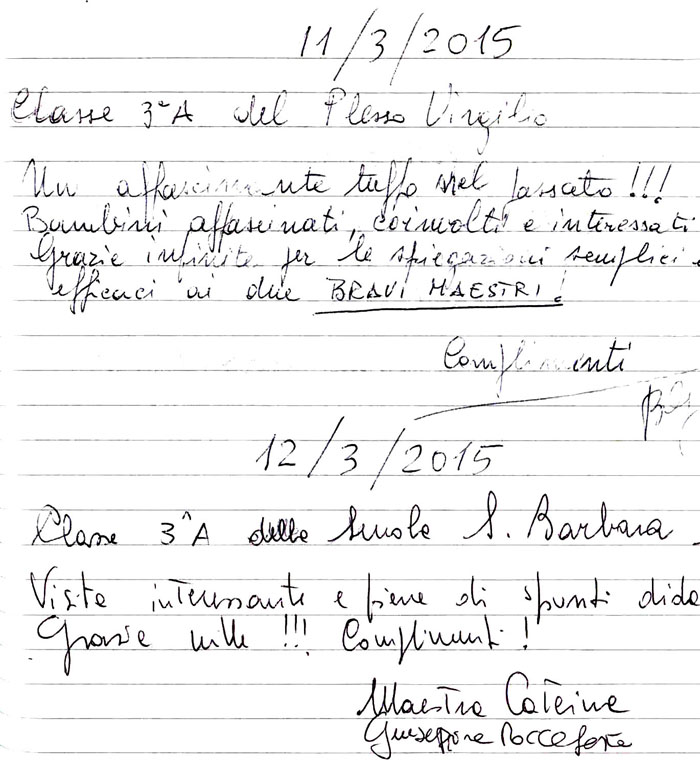 11/3/2015
Classe 3ª A del Plesso Virgilio
Un affascinante tuffo nel passato!!!
Bambini affascinati, coinvolti e interessati
Grazie infinite per le spiegazioni semplici e
efficaci ai due BRAVI MAESTRI!
Complimenti
12/3/2015
Classe 3^A della Scuola S. Barbara
Visita interessante e piena di spunti dida
Grazie mille !!! Complimenti!
Maestra Caterina
Giuseppina Roccaforte